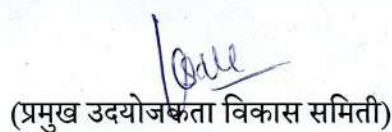 (प्रमुख उदयोजकता विकास समिती)